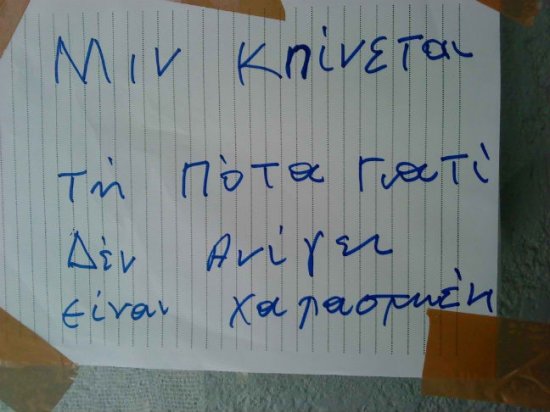 Μιν Κπίνεται
τη Πότα Γιατί
Δέν Ανίγει
είναι Χαπασμένη